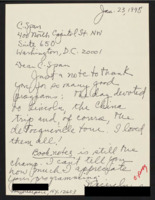 Jan. 23, 1998
C-Span
400 North Capitol St. NW
Suite 650
Washington, D.C. 20001
Dear C-Span,
Just a note to thank
you for so many good
programs. The day devoted
to Lincoln, the China
trip and, of course, the
de Tocqueville tour. I loved
them all!
Booknotes is still the
champ. I can't tell you
how much I appreciate
your programming.
Sincerely,